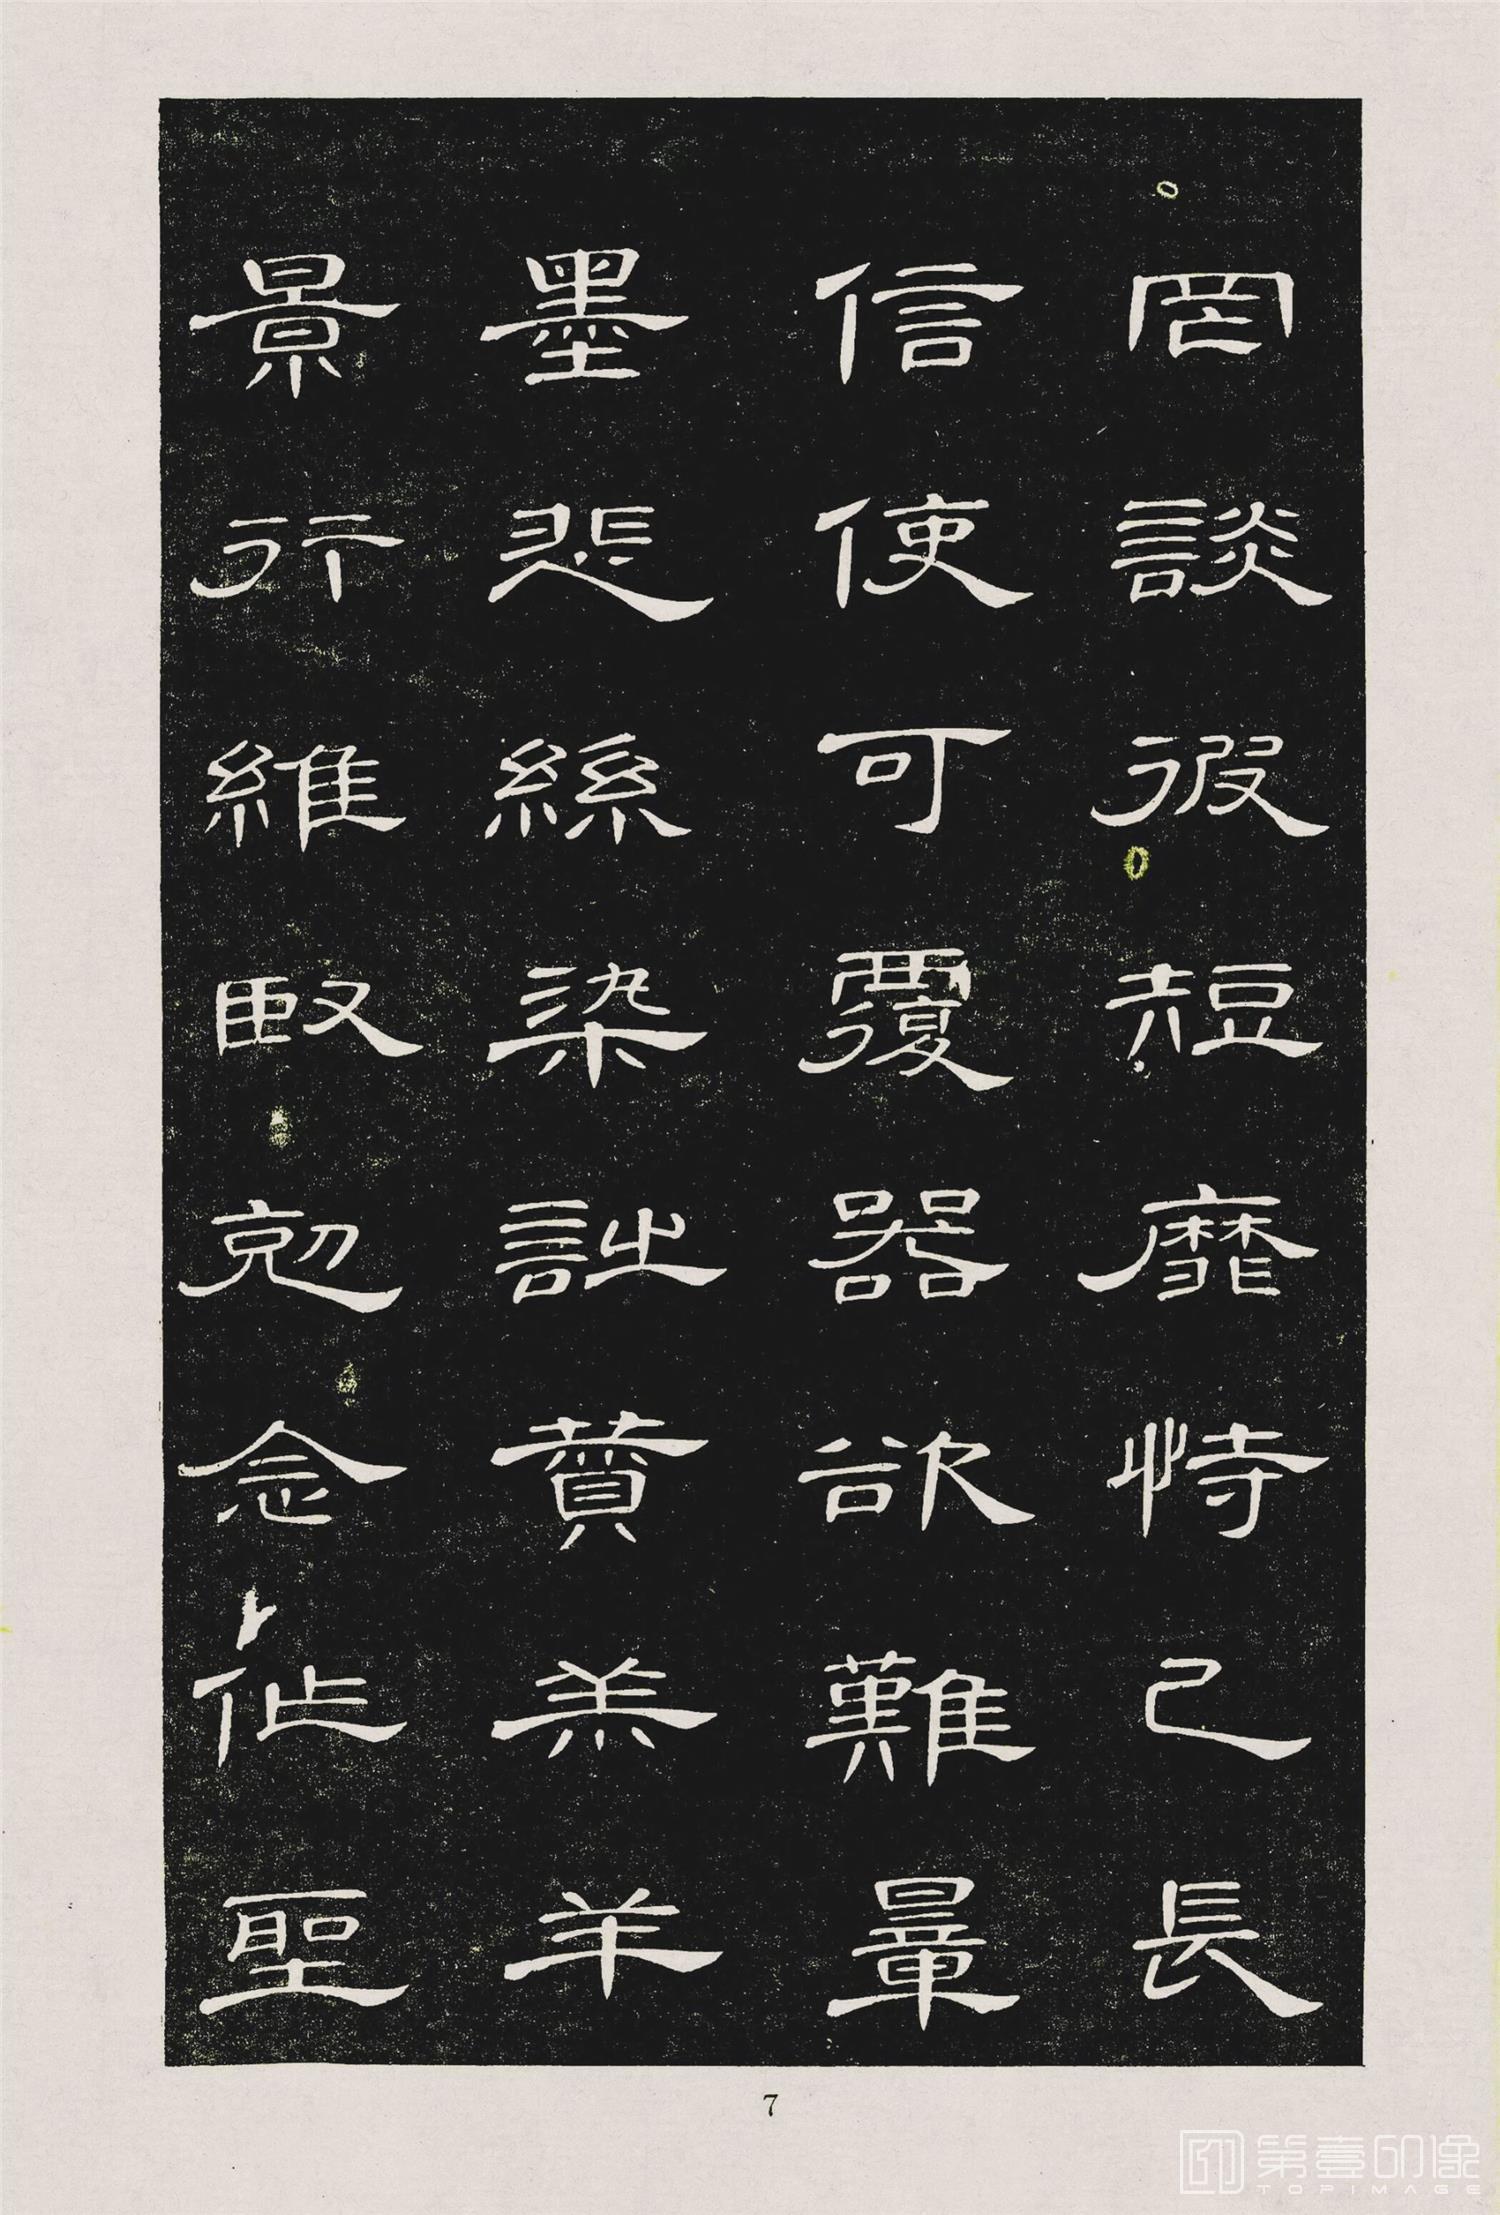 罔談彼短靡恃己長
信使可覆器欲難量
墨悲絲染詩賛羔羊
景行維臤剋念作聖
7
第壹印像
TOPIMAGE